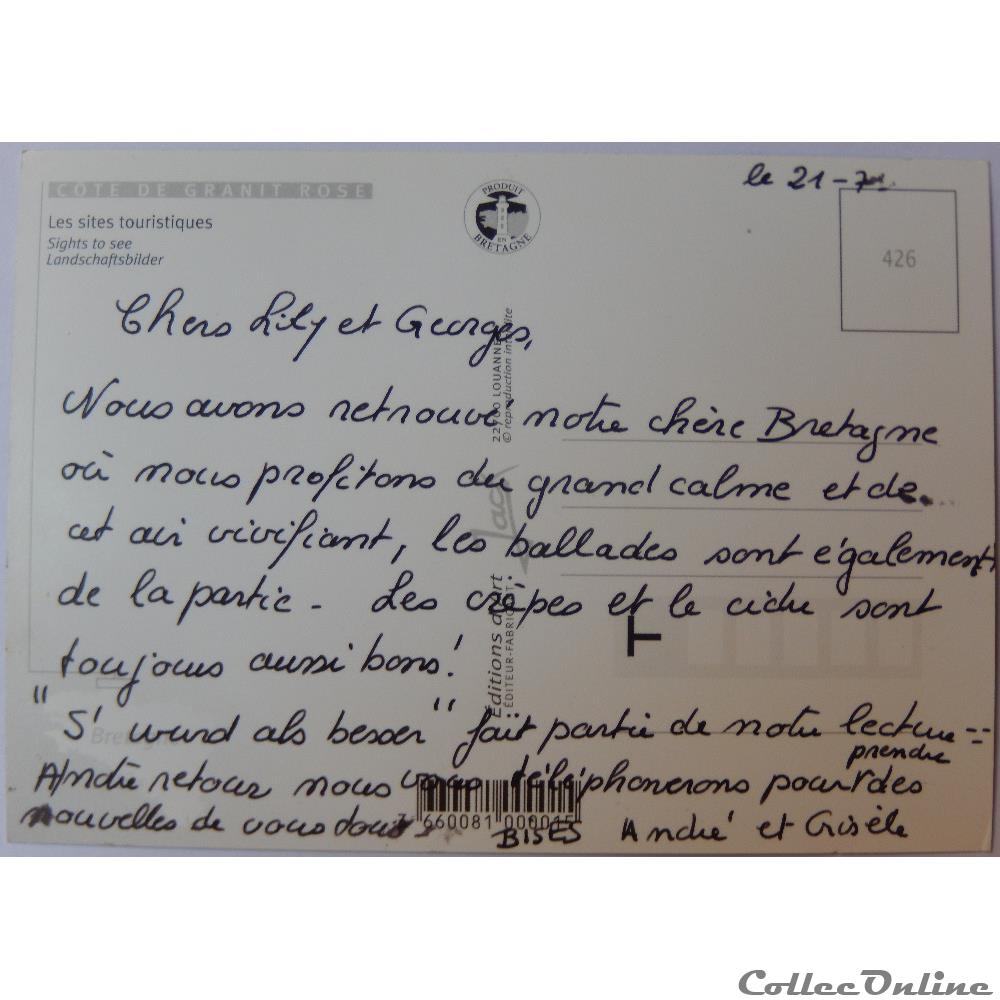 le 21-7
CÔTE DE GRANIT ROSE
Les sites touristiques
Sights to see
Landschaftsbilder
PRODUIT
EN
BRETAGNE
426
Chers Lily et Georges,
Nous avons retrouvé notre chère Bretagne
où nous profitons du grand calme et de
cet air vivifiant, les ballades sont également
de la partie - Les crêpes et le cidre sont
toujours aussi bons!
"S' wurd als besser" fait partie de notre lecture --
prendre
retour nous vous téléphonerons pour des
nouvelles de vous tous
BISES André et Gisèle
22700 LOUANNEC
© reproduction interdite
Jack
Éditions d'art
ÉDITEUR-FABRICANT
Bretagne
660081 000015
CollecOnline